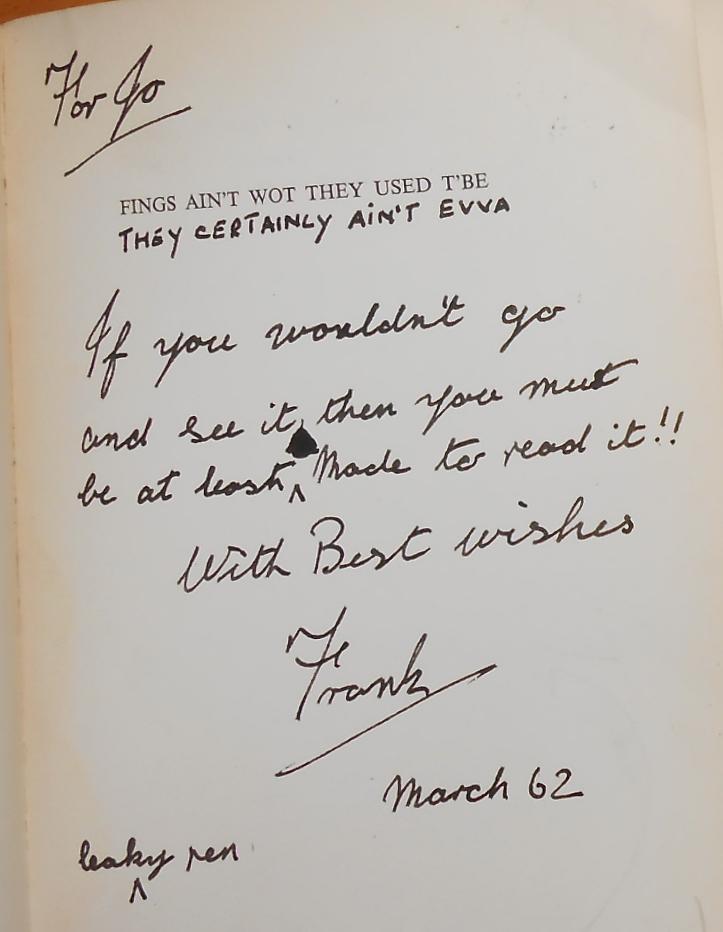 For Jo
FINGS AIN'T WOT THEY USED T'BE
THEY CERTAINLY AIN'T EVVA
If you wouldn't go
and see it, then you must
be at least ^ Made to read it!!
With Best wishes
Frank
March 62
leaky pen
^